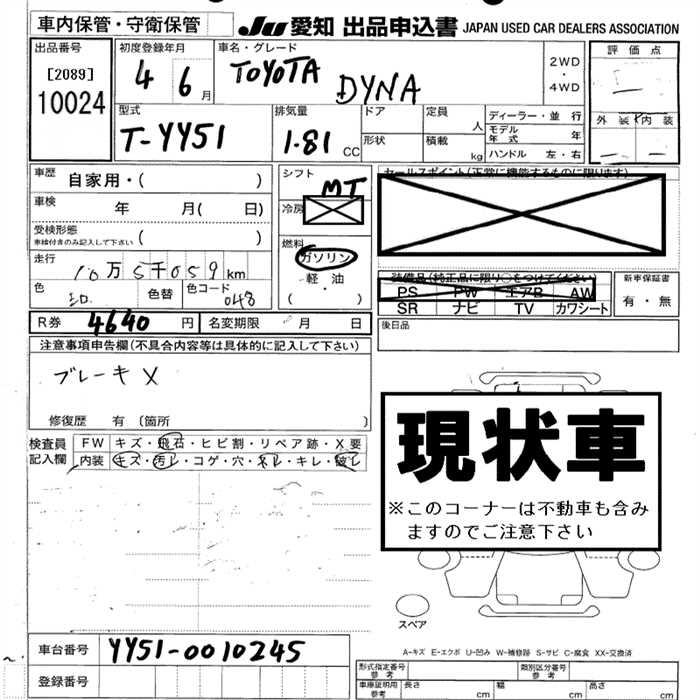 車内保管・守衛保管
JU 愛知 出品申込書 JAPAN USED CAR DEALERS ASSOCIATION
出品番号
[2089]
10024
初度登録年月
4 6 月
車名・グレード
TOYOTA DYNA
2WD
・
4WD
評価点
外装 内装
型式
T-YY51
排気量
1.81 CC
ドア
定員 人
形状
積載 kg
ディーラー・並行
モデル年式 年
ハンドル 左・右
車歴 自家用・( )
車検 年 月( 日)
受検形態
車検付きのみ記入して下さい ( )
走行 10万5千059km
色 シロ 色替 色コード 048
シフト MT
冷房
燃料
ガソリン
・
軽油
( )
セールスポイント(正常に機能するものに限ります)
装備品(純正品に限り○をつけてください)
PS PW エアB AW
SR ナビ TV カワシート
新車保証書
有・無
後日品
R券 4640 円 名変期限 月 日
注意事項申告欄(不具合内容等は具体的に記入して下さい)
ブレーキ X
修復歴 有 〔箇所 〕
検査員記入欄
FW キズ・飛石・ヒビ割・リペア跡・X要
内装 キズ・汚レ・コゲ・穴・ヌレ・キレ・破レ
現状車
※このコーナーは不動車も含み
ますのでご注意下さい
スペア
A-キズ E-エクボ U-凹み W-補修跡 S-サビ C-腐食 XX-交換済
車台番号 YY51-0010245
登録番号
形式指定番号 参考
類別区分番号 参考
車庫証明用 参考 長さ cm 幅 cm 高さ cm